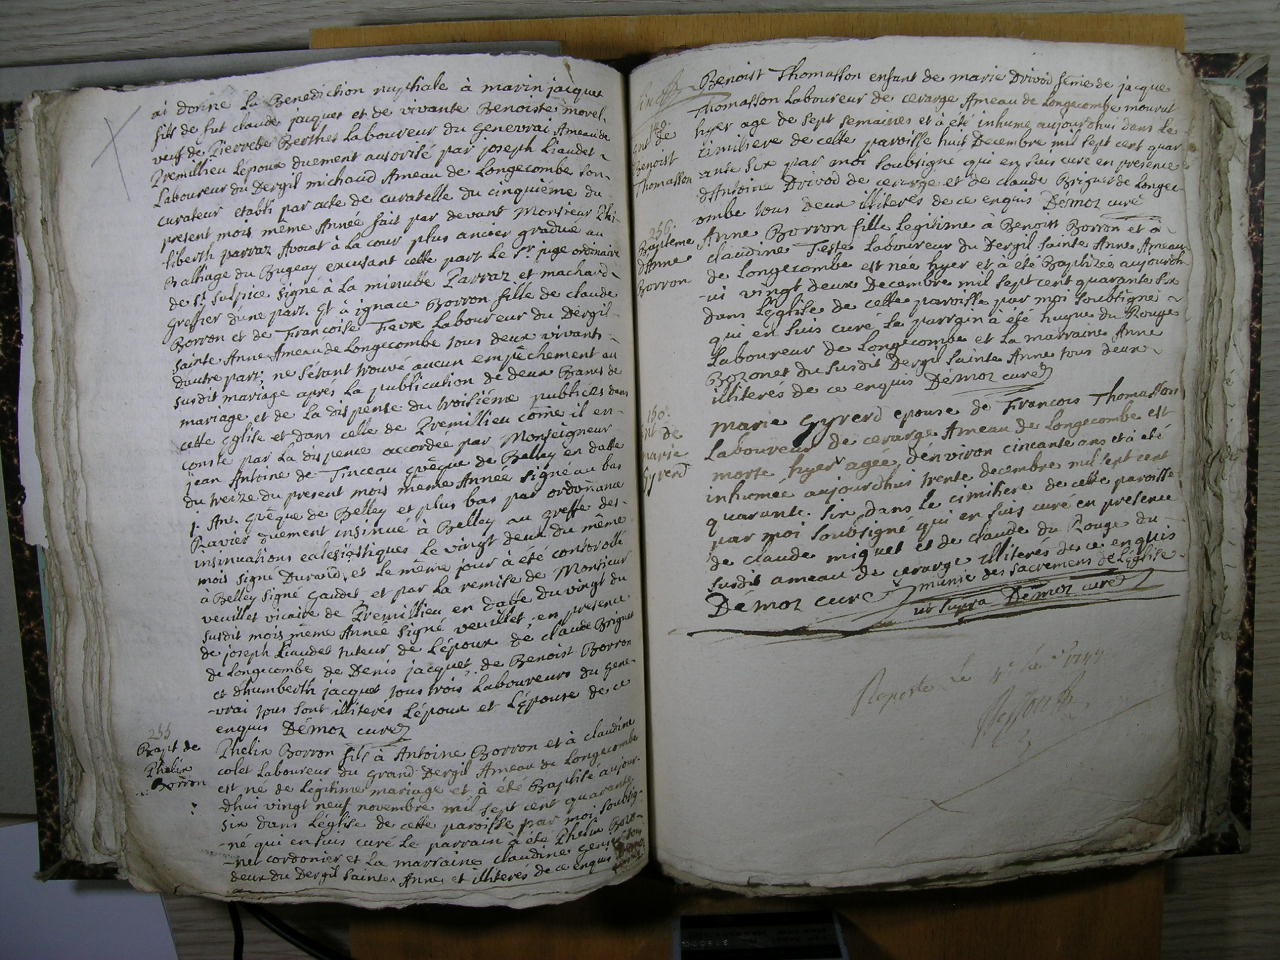 ai donné La Benediction nuptiale à marin jacquet
fils de fut claude jaquet et de vivante Benoiste morel
veuf de Pierrete Berthet Laboureur du Genevrai Ameau de
Premillieu Lépoux duement autorisé par joseph Liaudet
Laboureur du Dergil michaud Ameau de Longecombe son
curateur etabli par acte de curatelle du cinquième du
present mois même Année fait par devant Monsieur Phi-
liberth parraz Avocat à la cour plus ancien gradué au
Balliage du Bugeay excusant cette part le Sr juge ordinaire
de St Sulpice signé à La minutte Parraz et machard
Greffier dune part. Et à ignace Borron fille de claude
Borron et de Francoise Favre Laboureur du Dergil
Sainte Anne Ameau de Longecombe tous deux vivants
dautre part, ne s'étant trouvé aucun empêchement au
susdit mariage aprés la publication de deux Bans de
mariage et de La dispense du troisième publiés dans
cette Eglise et dans celle de Premillieu come il en-
conste par La dispence accordée par Monseigneur
jean Antoine de Tinceau Evêque de Belley en datte
du treize du present mois même Année signé au bas
j. Ant. Evêque de Belley et plus bas par ordonnance
Ravier duement insinué à Belley au greffe des
insinuations eclesiastiques Le vingt deux du même
mois signé Durand, et Le même jour à été controllé
à Belley signé Gaudet et par la remise de Monsieur
veuillet vicaire de Premillieu en datte du vingt du
susdit mois meme Année signé veuillet, en presence
de joseph Liaudet tuteur de Lépoux de claude Briguet
de Longecombe de Denis jacquet, de Benoist Borron
et dhumberth jacquet tous trois Laboureurs du Gene-
vrai tous sont illiterés Lépoux et Lépouse de ce
enquis Démoz curé
255
Bapt de
Phelix
Borron
Phelix Borron fils à Antoine Borron et à claudine
colet Laboureur du grand Dergil Ameau de Longecombe
est né de Légitime mariage et à été Baptisé aujour-
dhui vingt neuf novembre mil sept cent quarante
six dans L'église de cette paroisse par moi soubsig-
-né qui en suis curé Le parrain à été Phelix Bozo-
-net cordonier et La marraine claudine
deux du Dergil Sainte Anne et illiterés de ce enquis
ent de
Benoist
Thomasson
Benoist Thomasson enfant de marie Drivod féme de jacque
Thomasson Laboureur de cerarge Ameau de Longecombe mourut
hyer age de sept semaines et à été inhumé aujourdhui dans Le
cimitiere de cette paroisse huit Decembre mil sept cent quar
ante six par moi soubsigné qui en suis curé en presence
d'Antoine Drivod de cerarge et de claude Briguet de Longec
ombe tous deux illiterés de ce enquis Démoz curé
256
Baptême
d'Anne
Borron
Anne Borron fille Légitime à Benoist Borron et à
claudine Teste Laboureur du Dergil Sainte Anne Ameau
de Longecombe est née hyer et à été Baptizée aujourdh
-ui vingt deux Decembre mil sept cent quarante six
dans L'église de cette paroisse par moi soubsigné
qui en suis curé Le parrain à été hugue du Rouge
Laboureur de Longecombe et La marraine Anne
Bozonet du susdit Dergil Sainte Anne tous deux
illiterés de ce enquis Démoz curé
ent de
marie
Gyrerd
marie Gyrerd epouse de Francois Thomasson
Laboureur de cerarge Ameau de Longecombe est
morte hyer agée d'environ cincante ans et à été
inhumée aujourdhui trente decembre mil sept cent
quarante six dans le cimitiere de cette paroisse
par moi soubsigné qui en suis curé en presence
de claude miguet et de claude du Rouge du
susdit ameau de cerarge illiterés de ce enquis
Démoz curé munie des sacremens de l'Eglise
ut supra Démoz curé